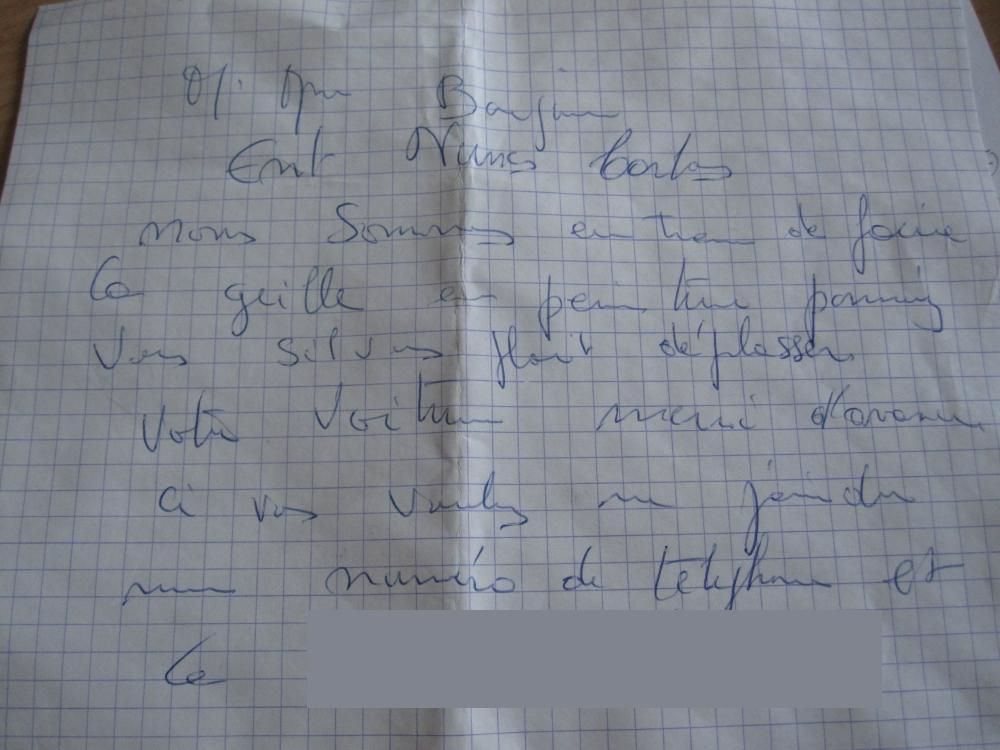 Mr Mme Bonjour
Ent Nunes Carlos
nous sommes en train de faire
la grille en peinture pouvez
vous silvous plait déplasser
votre voiture merci d'avance
ci vous voulez me joindre
mon numéro de telephone et
le